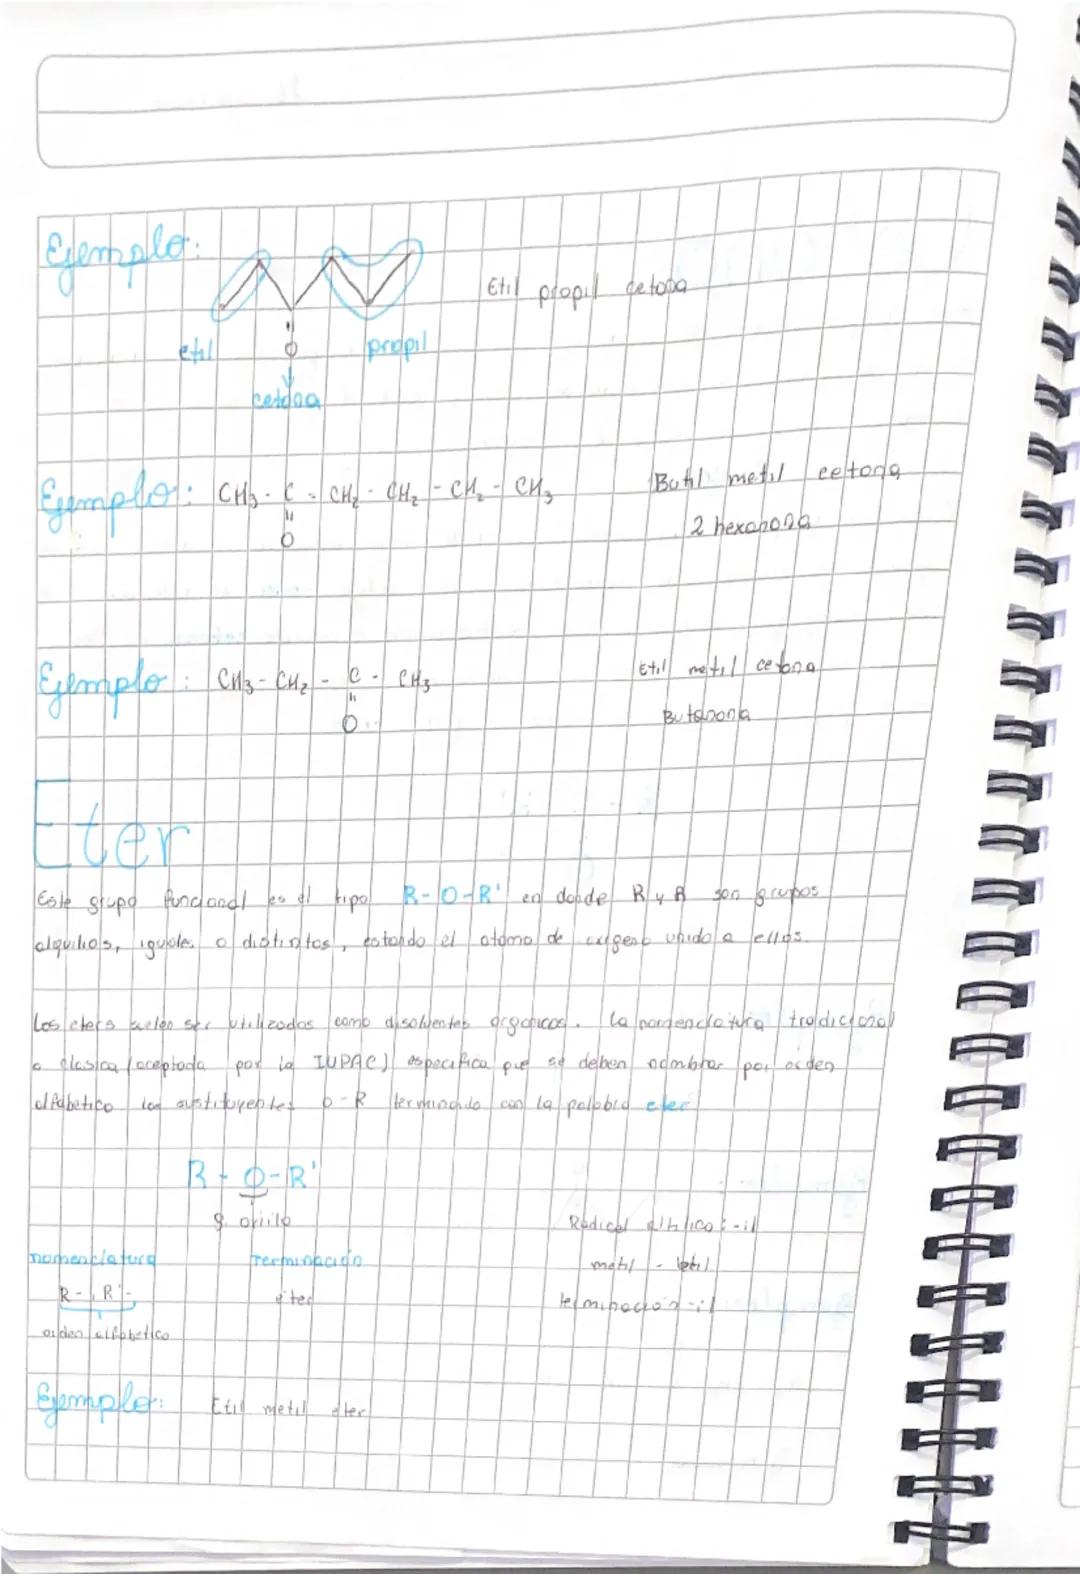 Ejemplo:
Etil propil cetona
etil
O
propil
cetona
Ejemplo: CH3 - C - CH2 - CH2 - CH2 - CH3
Butil metil cetona
"
O
2 hexanona
Ejemplo: CH3 - CH2 - C - CH3
Etil metil cetona
"
O
Butanona
Eter
Este grupo funcional es el tipo R-O-R' en donde R y R son grupos
alquilios, iguales o distintos, estando el atomo de oxigeno unido a ellos.
Los eters suelen ser utilizados como disolventes organicos. La nomenclatura tradicional
o clasica (aceptada por la IUPAC) especifica que se deben nombrar por orden
alfabetico los sustituyentes o-R terminando con la palabra eter
R - O - R'
g. oxiilo
Radical : -il
nomenclatura
terminación
metil - etil
R - R' -
éter
terminación -il
orden alfabetico
Ejemplo: Etil metil eter